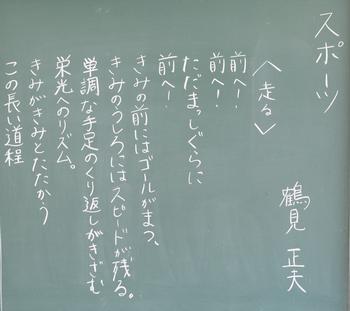 スポーツ
〈走る〉
鶴見 正夫
前へ!
前へ!
ただまっしぐらに
前へ!
きみの前にはゴールがまつ、
きみのうしろにはスピードが残る。
単調な手足のくり返しがきざむ
栄光へのリズム。
きみがきみとたたかう
この長い道程